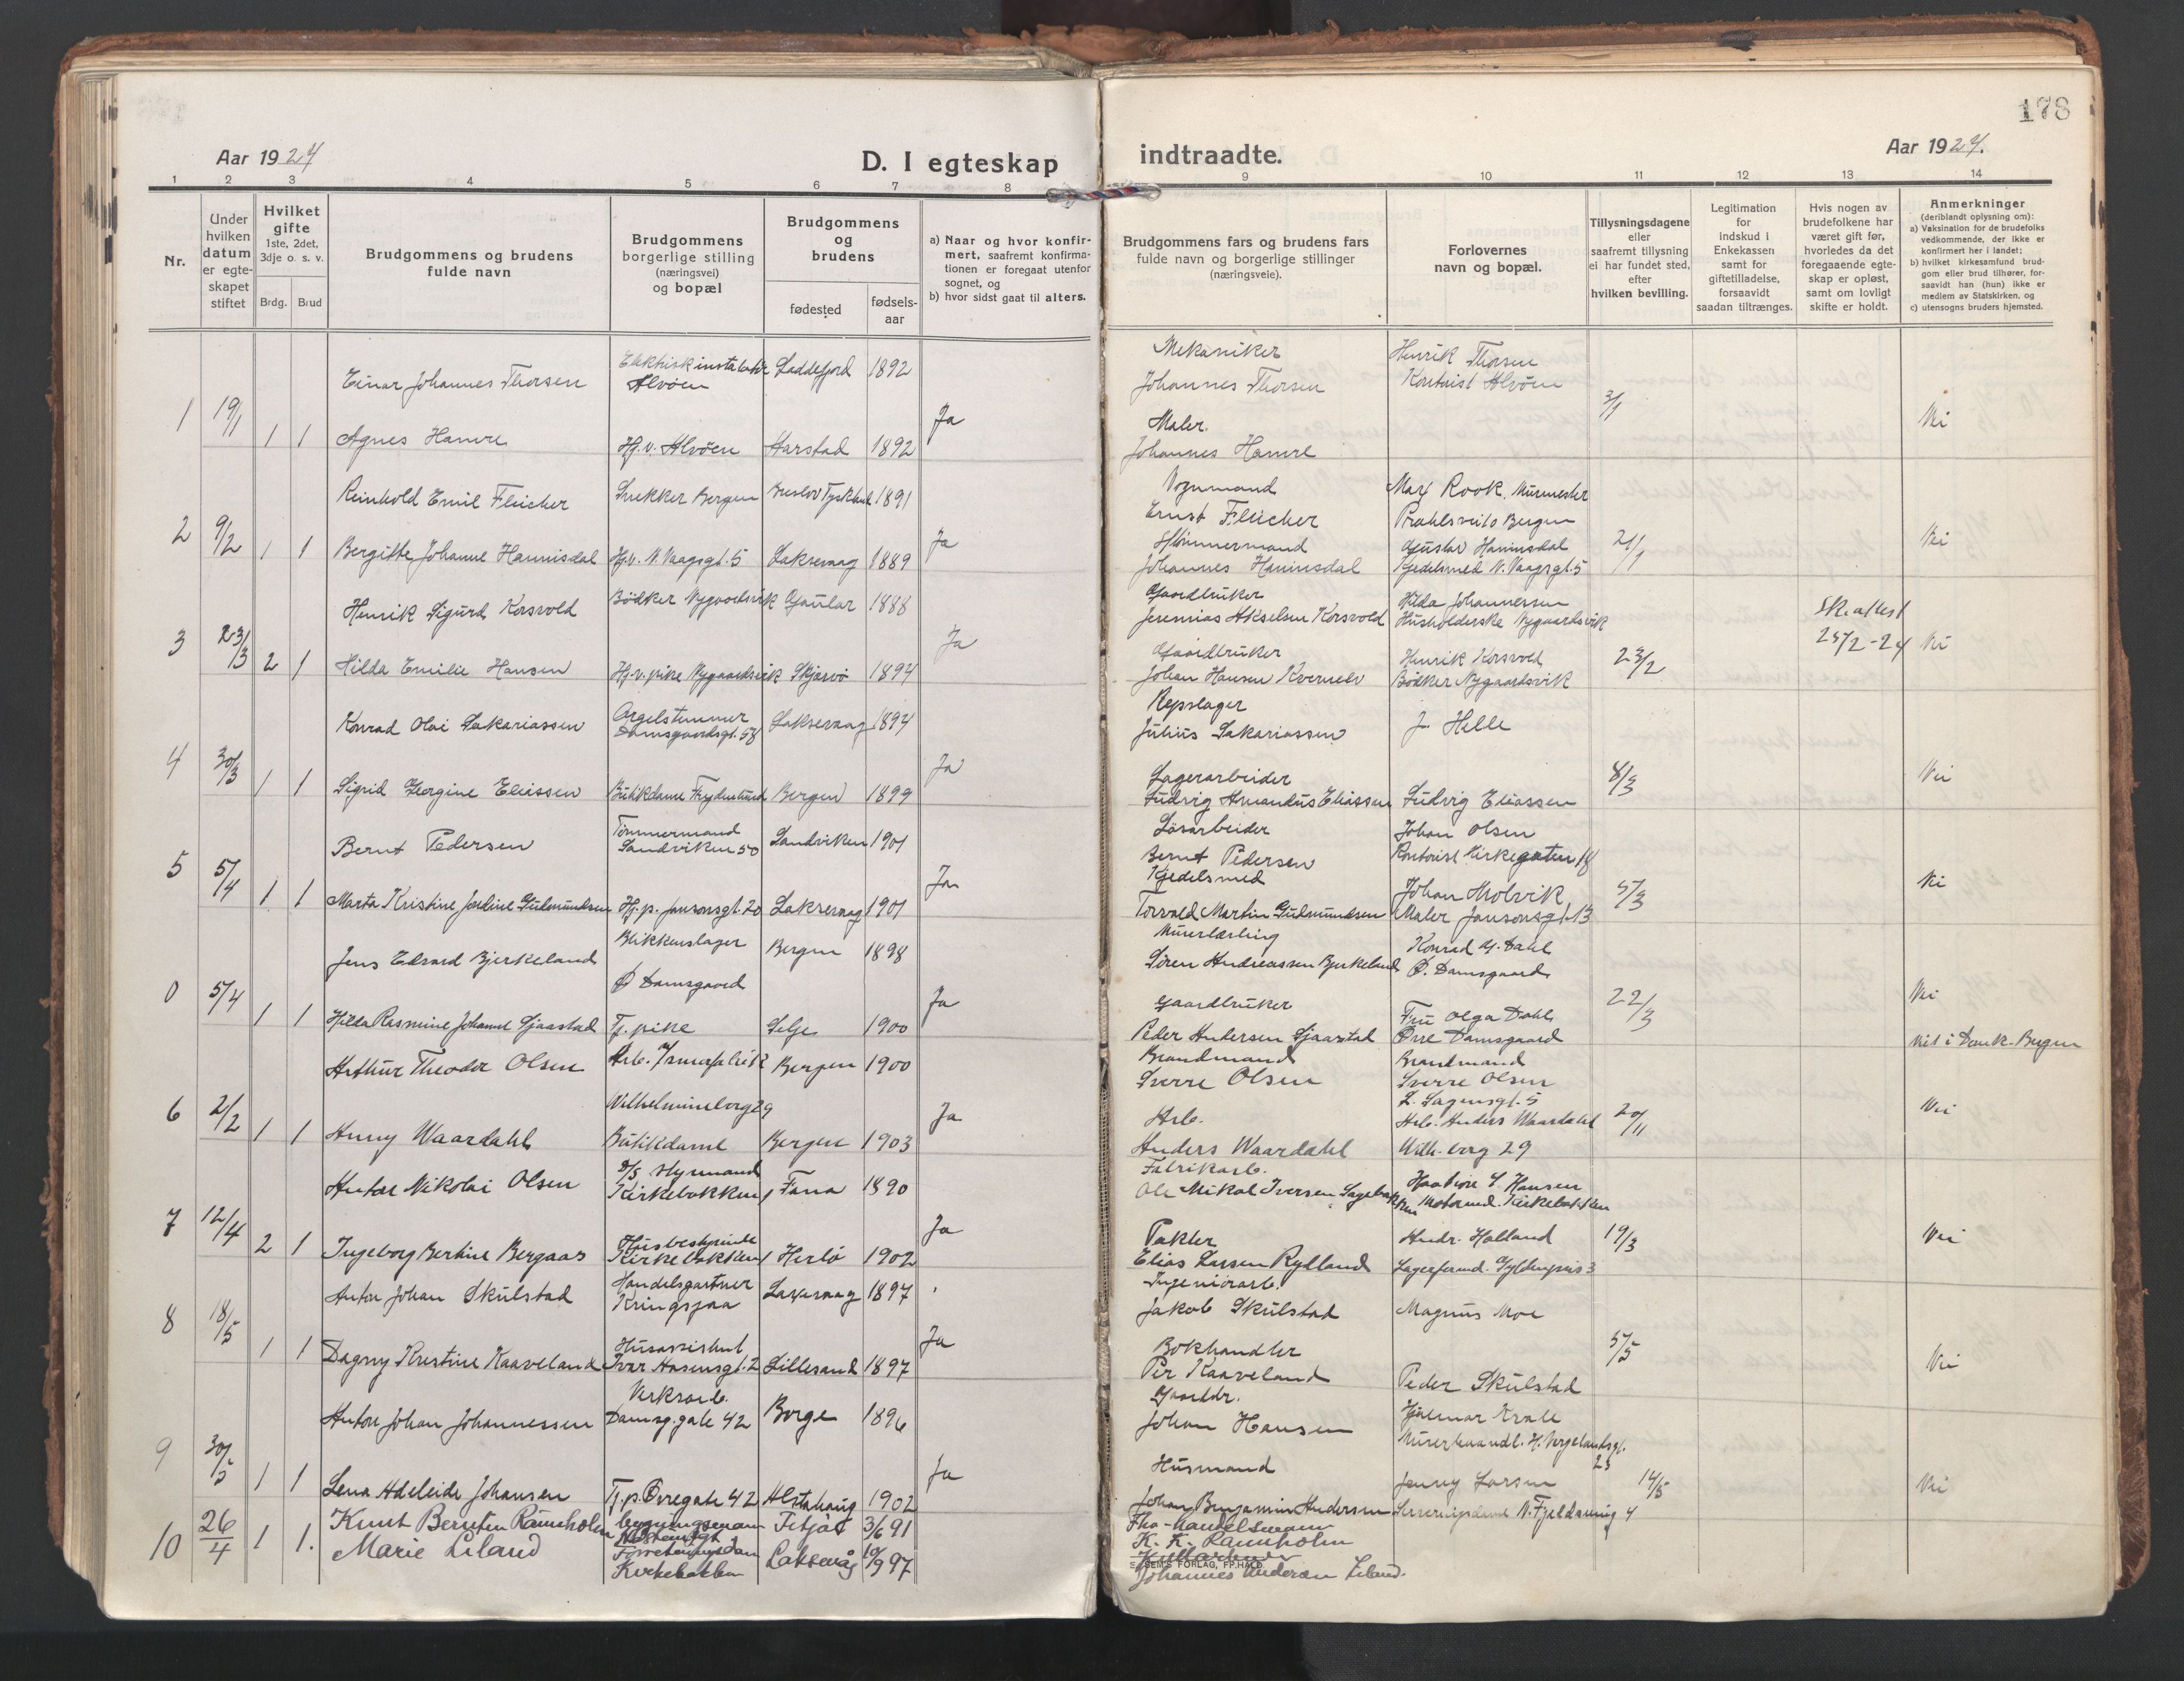 178
Aar 1924
D. I egteskap
indtraadte.
Aar 1924.
1 2 3 4 5 6 7 8 9 10 11 12 13 14
Nr.
Under hvilken datum er egte-skapet stiftet
Hvilket gifte
1ste, 2det, 3dje o. s. v.
Brdg. Brud
Brudgommens og brudens fulde navn
Brudgommens borgerlige stilling (næringsvei) og bopæl
Brudgommens og brudens
fødested
fødsels-aar
a) Naar og hvor konfir-mert, saafremt konfirma-tionen er foregaat utenfor sognet, og
b) hvor sidst gaat til alters.
Brudgommens fars og brudens fars fulde navn og borgerlige stillinger (næringsveie).
Forlovernes navn og bopæl.
Tillysningsdagene eller saafremt tillysning ei har fundet sted, efter hvilken bevilling.
Legitimation for indskud i Enkekassen samt for giftetilladelse, forsaavidt saadan tiltrænges.
Hvis nogen av brudefolkene har været gift før, hvorledes da det foregaaende egte-skap er opløst, samt om lovligt skifte er holdt.
Anmerkninger (deriblandt oplysning om):
a) Vaksination for de brudefolks vedkommende, der ikke er konfirmert her i landet;
b) hvilket kirkesamfund brud-gom eller brud tilhører, for-saavidt han (hun) ikke er medlem av Statskirken, og
c) utensogns bruders hjemsted.
Einar Johannes Thorsen Alvöen Laddefjord 1892 Mekaniker Johannes Thorsen Henrik Thorsen Kontorist Alvöen
1 19/1 1 1 Agnes Hamre Hj. v. Alvöen Harstad 1892 Ja Maler. Johannes Hamre 3/1 Vi
Reinhold Emil Fleicher Snekker Bergen 1891 Vognmand Ernst Fleicher Max Rook. Murmester Bergen
2 9/2 1 1 Bergitte Johanne Hannisdal Hj. v. N. Vaagsgt. 5 Laksevaag 1889 Ja Johannes Hannisdal Gustav Hannisdal Kjedelsmed N. Vaagsgt. 5 21/1 Vi
Henrik Sigurd Korsvold Bödker Nygaardsvik Gaular 1888 Gaardbruker Jeremias Akselsen Korsvold Hilda Johannessen Husholderske Nygaardsvik
3 23/3 2 1 Hilda Emilie Hansen Hj. v. pike Nygaardsvik Skjervö 1894 Ja Gaardbruker Johan Hansen Henrik Korsvold Bödker Nygaardsvik 23/2 Sk. attest 25/2-24 Vi
Konrad Olai Sakariassen Orgelstemmer Damsgaardsgt. 58 Laksevaag 1894 Repslager Julius Sakariassen J. Helle
4 30/3 1 1 Sigrid Georgine Eliassen Butikdame Frydenlund Bergen 1899 Ja Lagerarbeider Ludvig Amandus Eliassen Ludvig Eliassen 8/3 Vi
Bernt Pedersen Tömmermand Sandviken 50 Sandviken 1901 Lösarbeider Bernt Pedersen Johan Olsen Kontorist Kirkegaten 18
5 5/4 1 1 Marta Kristine Gudmundsen Hj. p. Jansonsgt. 20 Laksevaag 1901 Ja Kjedelsmed Torvald Martin Gudmundsen Johan Molvik Maler Jansonsgt. 13 5/3 Vi
Jens Edvard Bjerkeland Blikkenslager Ö Damsgaard Bergen 1898 Sören Andreassen Bjerkeland Konrad G. Dahl Ö. Damsgaard
0 5/4 1 1 Hilda Rasmine Johanne Sjaastad Tj. pike Selje 1900 Ja Gaardbruker Peder Andersen Sjaastad Fru Olga Dahl Övre Damsgaard 22/3 Vi
Arthur Theodor Olsen Bergen 1900 Brandmand Sverre Olsen Brandmand Sverre Olsen L. Sagensgt. 5 Vit i Domk. Bergen
6 2/2 1 1 Anny Waardahl Wilhelmineborg 29 Butikdame Bergen 1903 Ja Arb. Anders Waardahl Arb. Anders Waardahl Wilh. borg 29 20/11 Vi
Anton Nikolai Olsen D/S Styrmand Kirkebakken Fana 1890 Fabrikarb. Ole Mikal Iversen Sagebakken Hansen Motormd. Kirkebakken
7 12/4 2 1 Ingeborg Bertine Bergaas Husbestyrinde Kirkebakken Herlö 1902 Ja Takler Elias Larsen Rylland Andr. Halland Lagerformd. Gyldenpris 3 19/3 Vi
Anton Johan Skulstad Handelsgartner Kringsjaa Laksevaag 1897 Ingeniörarb. Jakob Skulstad Magnus Moe
8 18/5 1 1 Dagny Kristine Kaaveland Husassistent Ivar Aasensgt. 2 Lillesand 1897 Ja Bokhandler Per Kaaveland Peder Skulstad 5/5 Vi
Anton Johan Johannessen Verksarb. Damsg. gate 42 Borge 1896 Gaardbr. Johan Hansen Hjalmar Krale H. Vergelandsgt. 23
9 30/5 1 1 Lena Adeleide Johansen Tj. p. Övregate 42 Alstahaug 1902 Ja Husmand Johan Benjamin Andersen Jenny Larsen N. Fjeldsmug 4 14/5 Vi
10 26/4 1 1. Knut Berntin Rameholm Fitjar 3/6 91 Fhv. handelsmann K. K. Rameholm
Marie Liland Forretningsdam Kirkebakken Laksevåg 10/9 97 Johannes Andersen Liland.
SEM'S FORLAG, FR.HALD